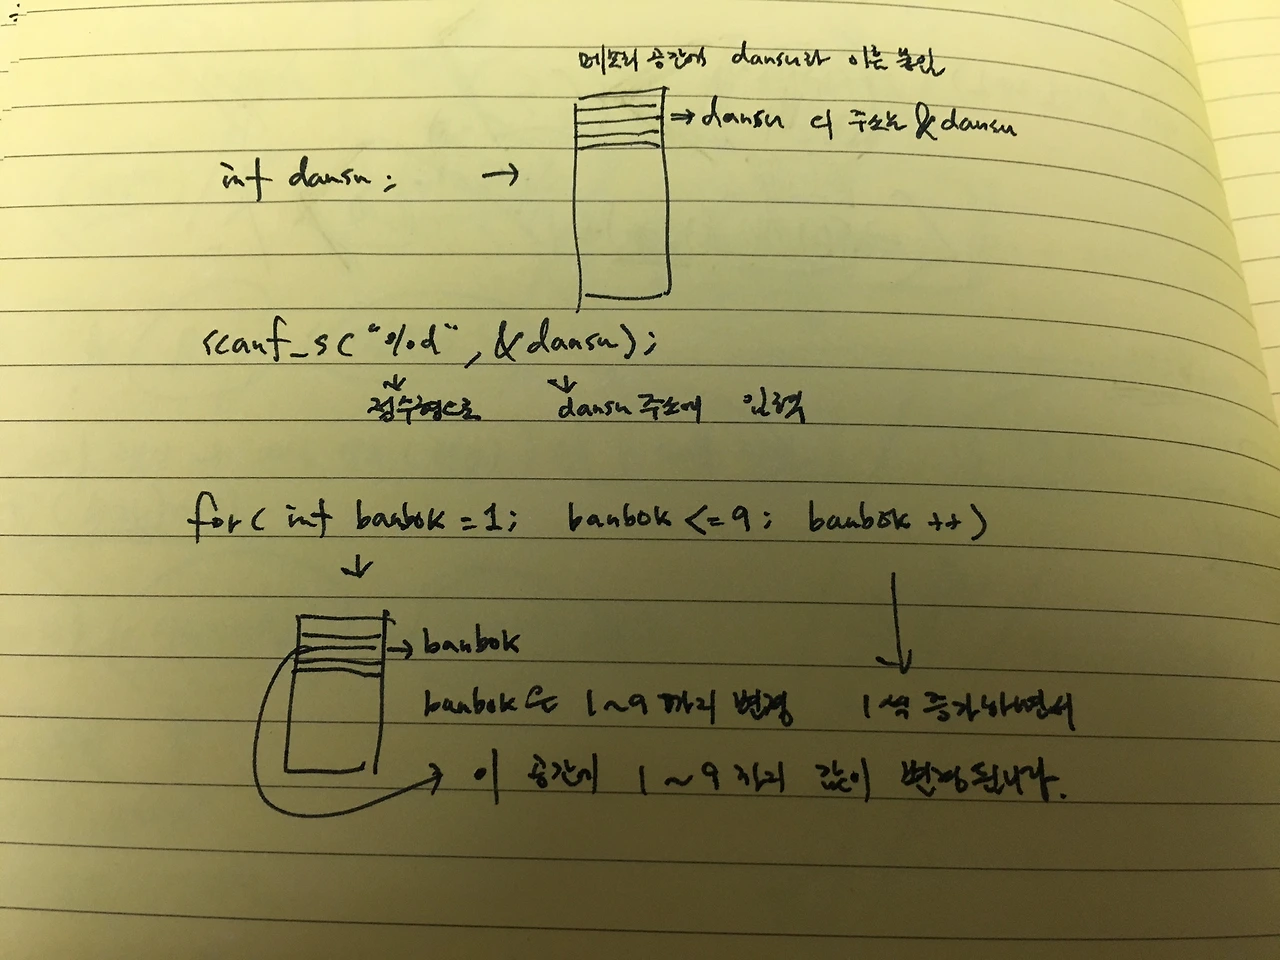 메모리 공간에 dansu라 이름 붙임
→ dansu 의 주소는 &dansu
int dansu; →
scanf_s("%d", &dansu);
↓ ↓
정수형으로 dansu 주소에 입력
for( int banbok = 1; banbok <= 9; banbok ++)
↓ ↓
→ banbok
banbok는 1~9 까지 변경 1씩 증가하면서
→ 이 공간에 1~9 까지 값이 변경됩니다.